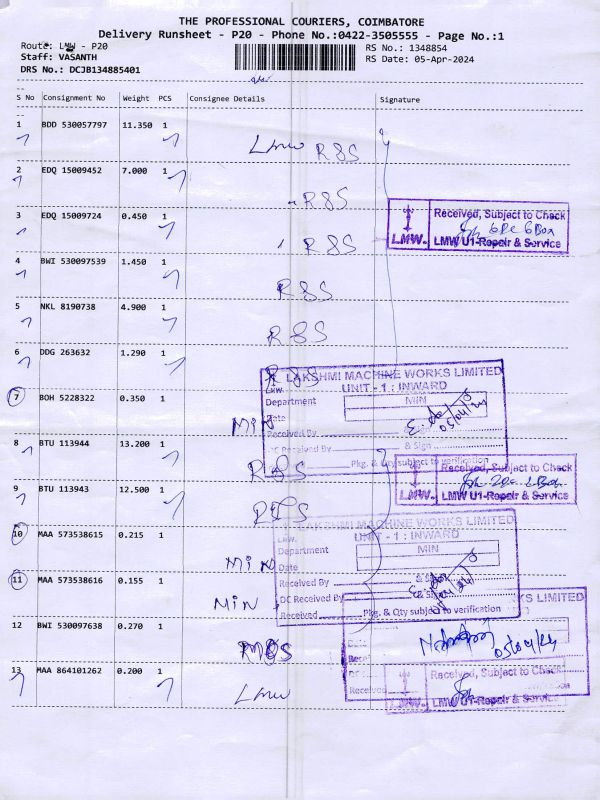 THE PROFESSIONAL COURIERS, COIMBATORE
Delivery Runsheet - P20 - Phone No.:0422-3505555 - Page No.:1
Route: LMW - P20
RS No.: 1348854
Staff: VASANTH
RS Date: 05-Apr-2024
DRS No.: DCJB134885401
S No Consignment No Weight PCS Consignee Details Signature
1 BDD 530057797 11.350 1
Lmw R&S
2 EDQ 15009452 7.000 1
R&S
Received, Subject to Check
6 Pc 6 Box
LMW. LMW U1-Repair & Service
3 EDQ 15009724 0.450 1
R&S
4 BWI 530097539 1.450 1
R&S
5 NKL 8190738 4.900 1
R&S
6 DDG 263632 1.290 1
R&S
LAKSHMI MACHINE WORKS LIMITED
UNIT - 1 : INWARD
LMW.
Department MIN
Date
05/04/24
Received By
DC Received By & Sign
Pkg. & Qty subject to verification
7 BOH 5228322 0.350 1
MIN
8 BTU 113944 13.200 1
R&S
Received, Subject to Check
LMW. LMW U1-Repair & Service
9 BTU 113943 12.500 1
R&S
LAKSHMI MACHINE WORKS LIMITED
UNIT - 1 : INWARD
LMW.
Department MIN
Date
Received By & Sign
DC Received By & Sign
Received Pkg. & Qty subject to verification
10 MAA 573538615 0.215 1
MIN
11 MAA 573538616 0.155 1
MIN
12 BWI 530097638 0.270 1
KS LIMITED
05/04/24
13 MAA 864101262 0.200 1
Lmw
Received, Subject to Check
Received
LMW. LMW U1-Repair & Service